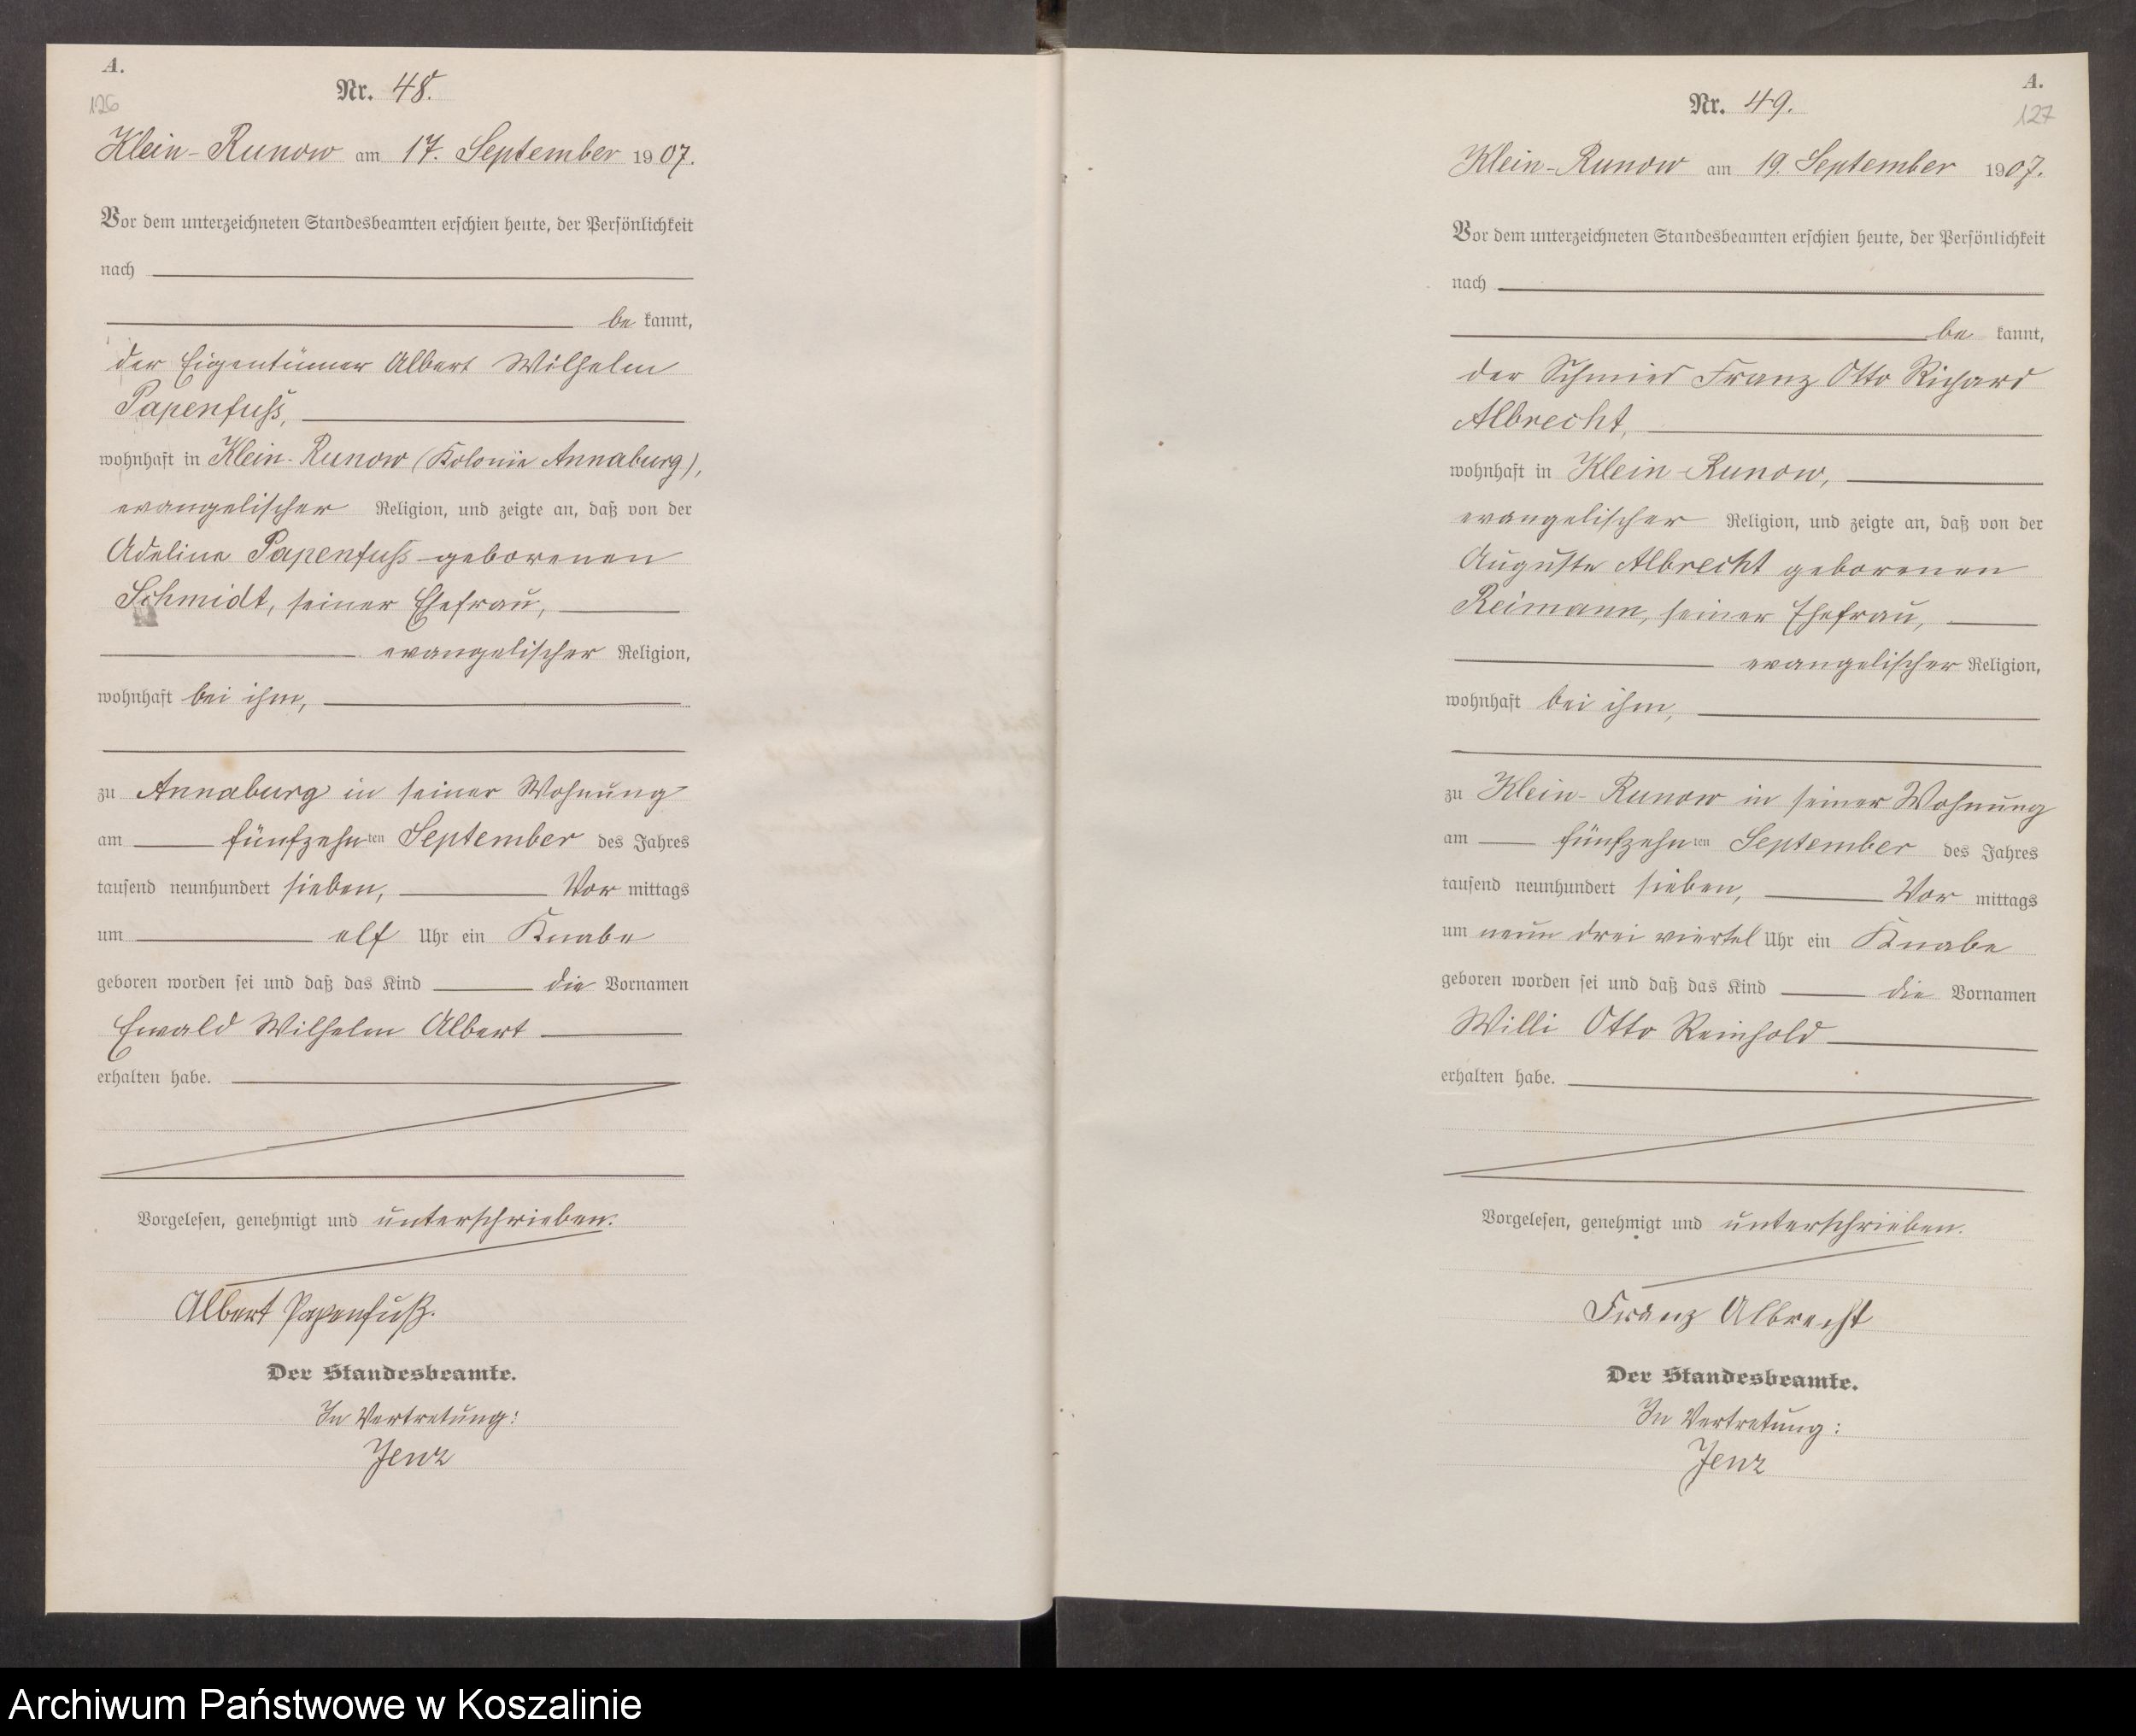 A.
126
Nr. 48.
Klein-Runow am 17. September 1907.
Vor dem unterzeichneten Standesbeamten erschien heute, der Persönlichkeit
nach
be kannt,
der Eigentümer Albert Wilhelm
Papenfuß,
wohnhaft in Klein-Runow (Kolonie Annaburg),
evangelischer Religion, und zeigte an, daß von der
Adeline Papenfuß geborenen
Schmidt, seiner Ehefrau,
evangelischer Religion,
wohnhaft bei ihm,
zu Annaburg in seiner Wohnung
am fünfzehnten September des Jahres
tausend neunhundert sieben, Vor mittags
um elf Uhr ein Knabe
geboren worden sei und daß das Kind die Vornamen
Ewald Wilhelm Albert
erhalten habe.
Vorgelesen, genehmigt und unterschrieben.
Albert Papenfuß.
Der Standesbeamte.
In Vertretung:
Jenz
A.
127
Nr. 49.
Klein-Runow am 19. September 1907.
Vor dem unterzeichneten Standesbeamten erschien heute, der Persönlichkeit
nach
be kannt,
der Schmied Franz Otto Richard
Albrecht,
wohnhaft in Klein-Runow,
evangelischer Religion, und zeigte an, daß von der
Auguste Albrecht geborenen
Reimann, seiner Ehefrau,
evangelischer Religion,
wohnhaft bei ihm,
zu Klein-Runow in seiner Wohnung
am fünfzehnten September des Jahres
tausend neunhundert sieben, Vor mittags
um neun drei viertel Uhr ein Knabe
geboren worden sei und daß das Kind die Vornamen
Willi Otto Reinhold
erhalten habe.
Vorgelesen, genehmigt und unterschrieben.
Franz Albrecht
Der Standesbeamte.
In Vertretung:
Jenz
Archiwum Państwowe w Koszalinie